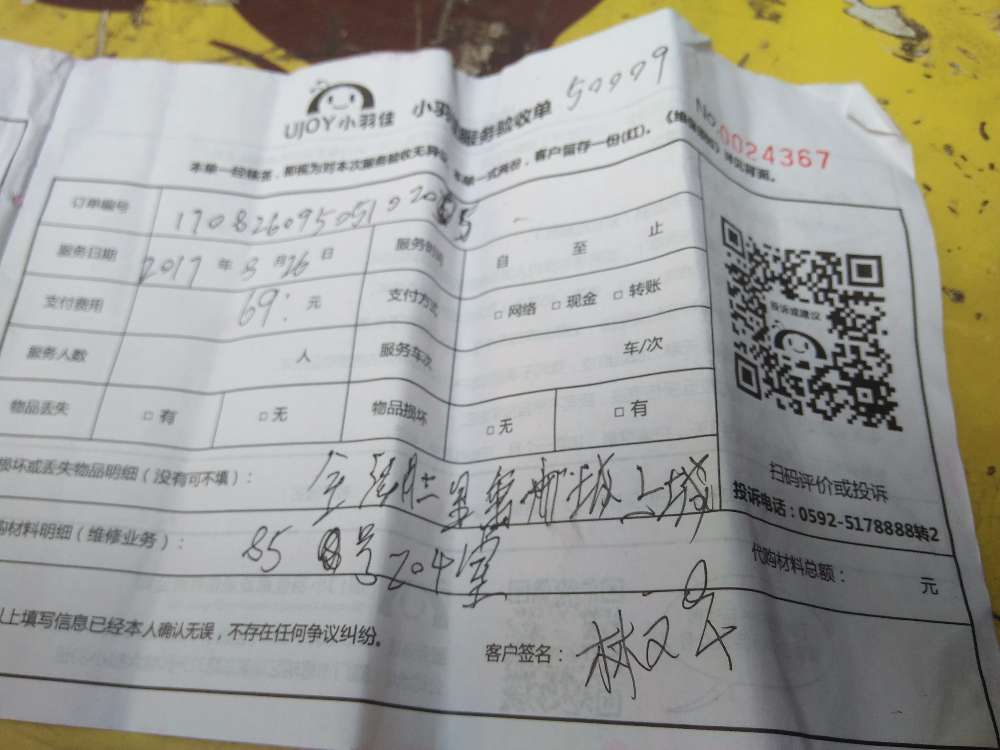 UJOY小羽佳 小羽佳服务验收单 50009
No.0024367
本单一经签签，即视为对本次服务验收无异议，本单一式两份，客户留存一份(红)。《维修细则》请见背面。
订单编号 170826095051020
服务日期 2017 年 8 月 26 日 服务时间 自 至 止
支付费用 69: 元 支付方式 □ 网络 □ 现金 □ 转账
服务人数 人 服务车次 车/次
物品丢失 □ 有 □ 无 物品损坏 □ 无 □ 有
投诉或建议
扫码评价或投诉
投诉电话：0592-5178888转2
损坏或丢失物品明细（没有可不填）：
城上城
购材料明细（维修业务）： 85 号204室
代购材料总额： 元
以上填写信息已经本人确认无误，不存在任何争议纠纷。
客户签名： 林又